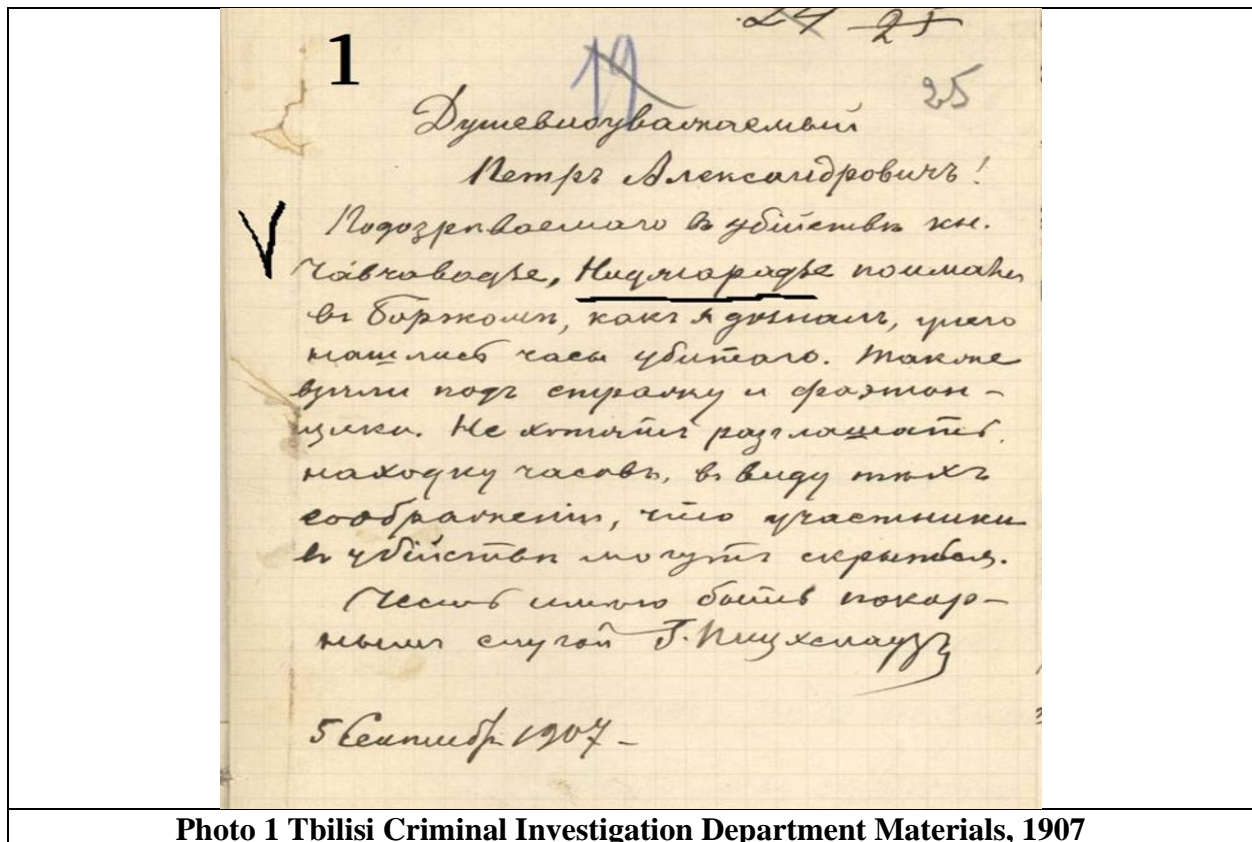 24 25
1 19 25
Душевноуважаемый
Петръ Александровичъ!
V Подозрѣваемаго в убійствѣ кн.
Чавчавадзе, Ниджарадзе поимали
въ Боржомѣ, какъ я дозналъ, у него
нашлись часы убитаго. Также
взяли подъ стражу и фаэтон-
щика. Не хотятъ разглашать
находку часовъ, въ виду тѣхъ
соображеній, что участники
в убійствѣ могутъ скрыться.
Честь имѣю быть покор-
нымъ слугой Г.
5 Сентябр 1907 –
Photo 1 Tbilisi Criminal Investigation Department Materials, 1907